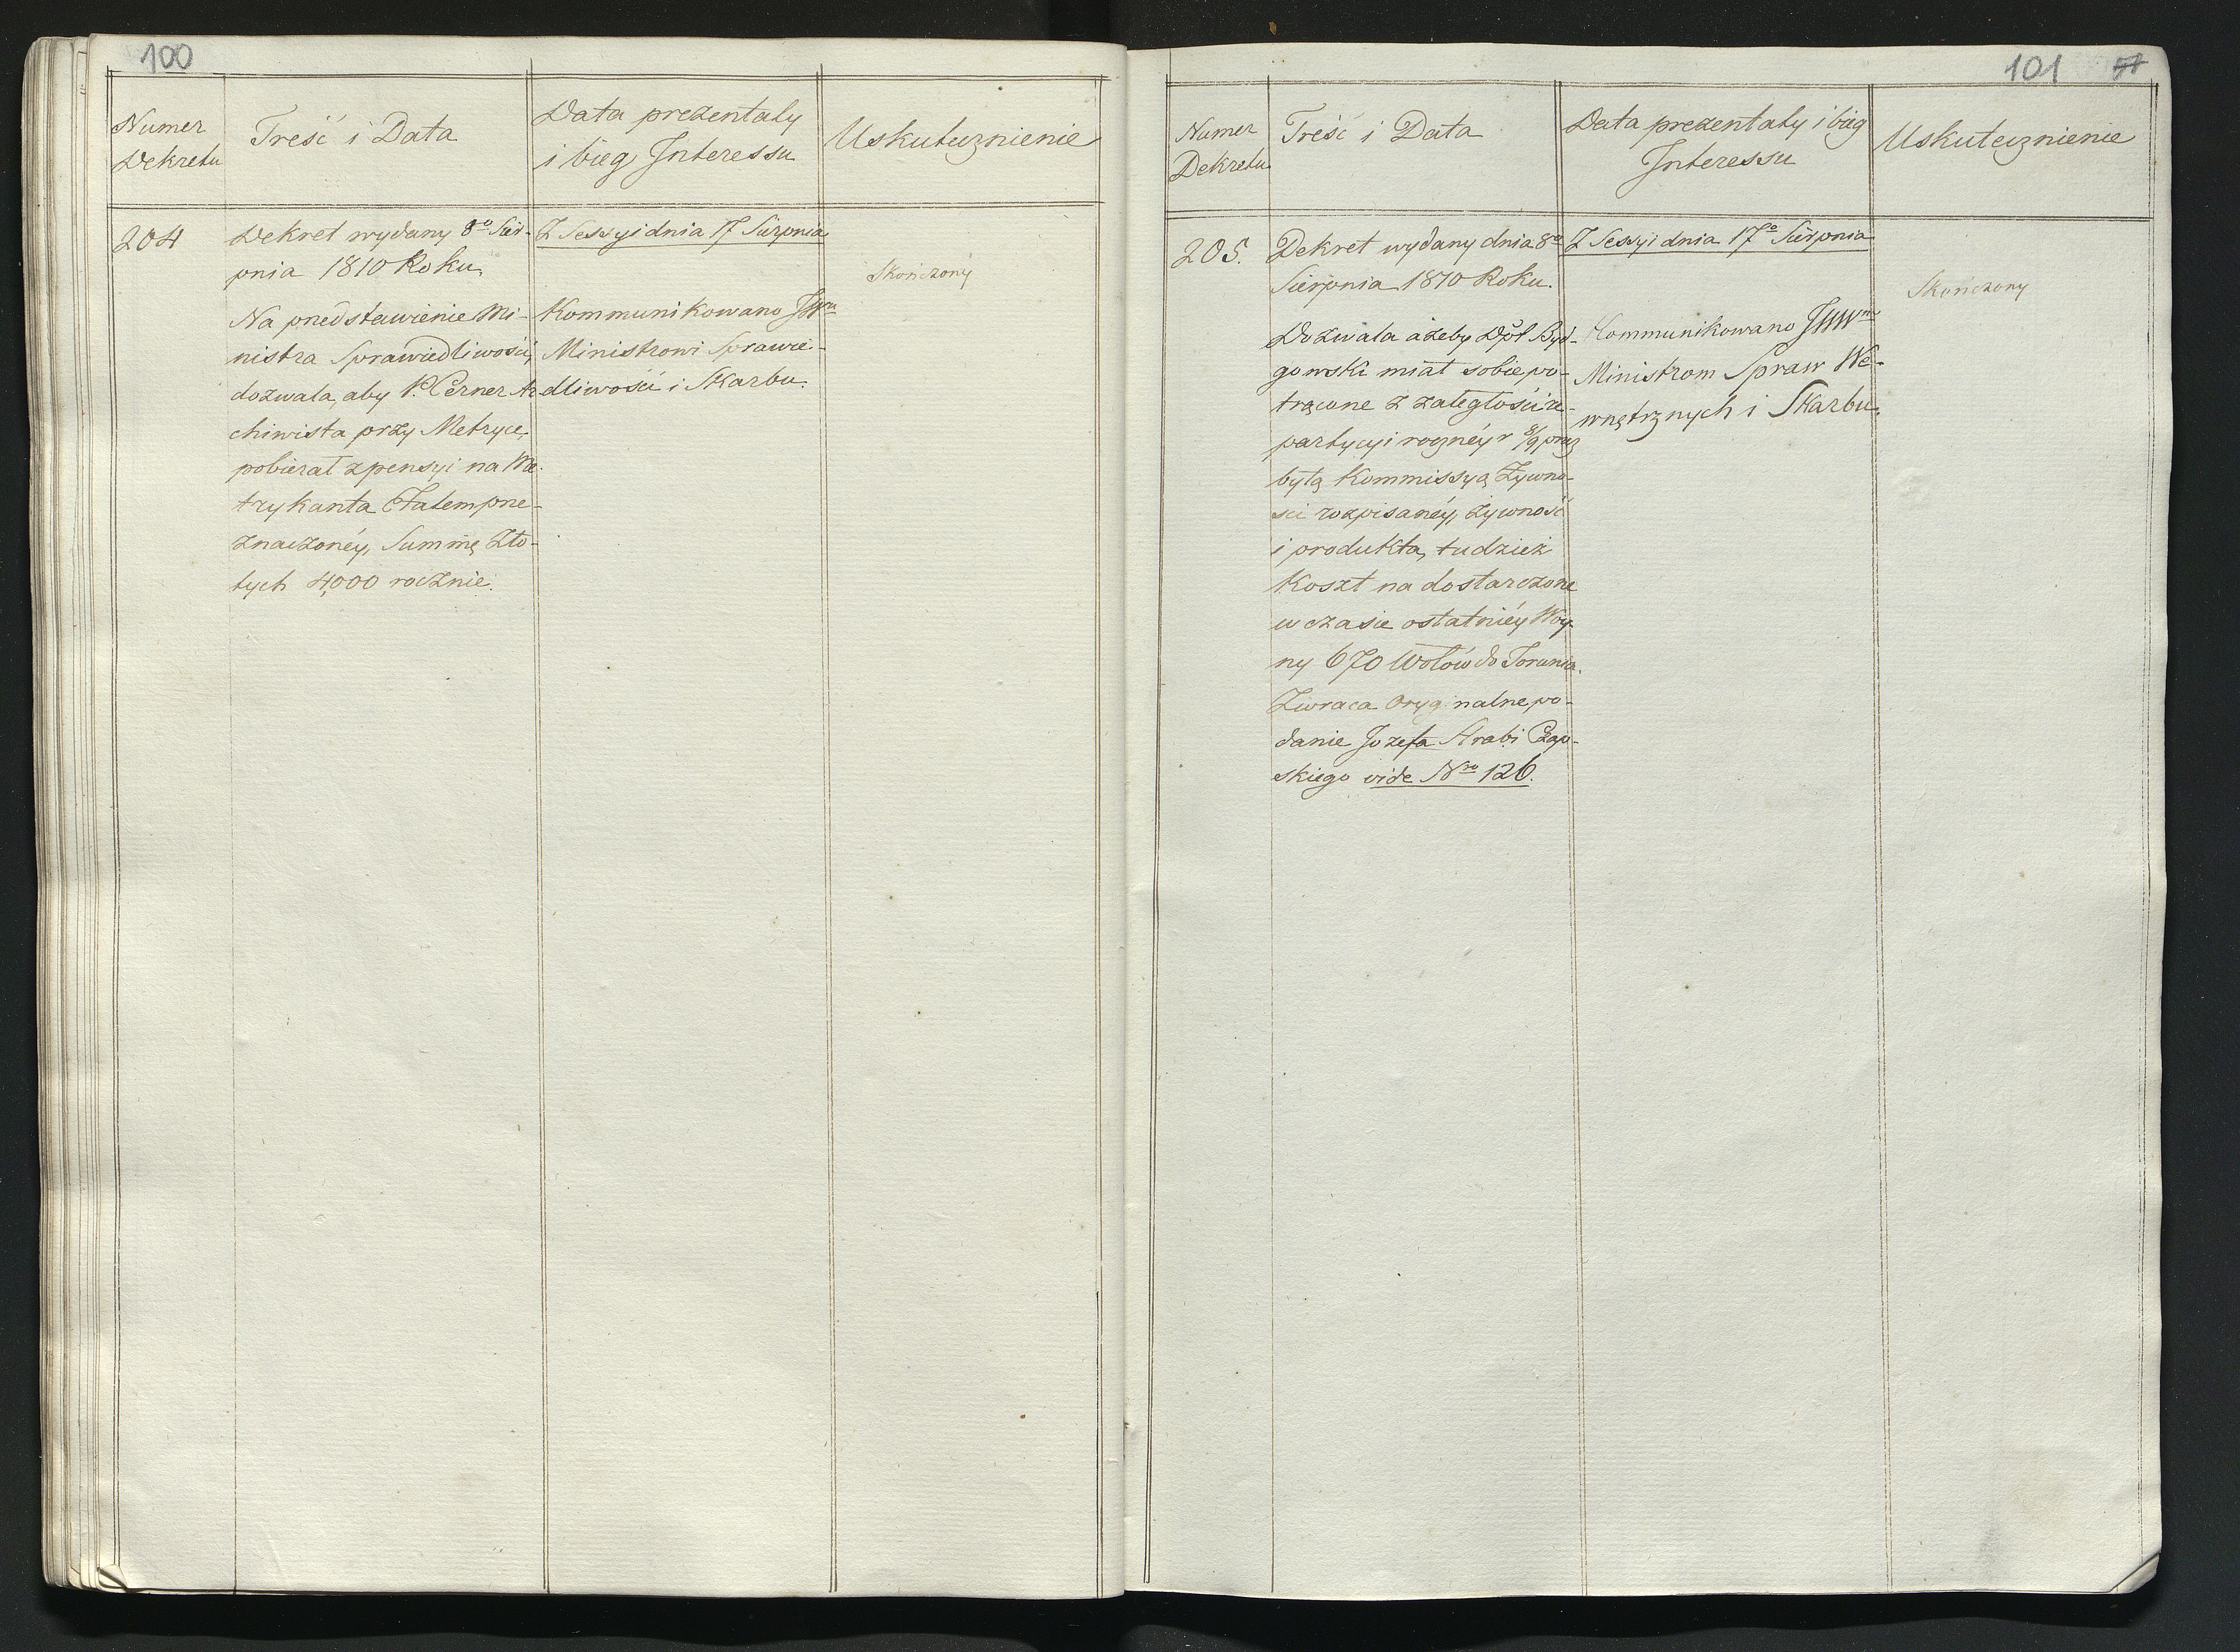 100
Numer
Dekretu
Treść i Data
Data prezentaty
i bieg Interessu
Uskutecznienie
204
Dekret wydany 8o Sier-
pnia 1810 Roku.
Na przedstawienie Mi-
nistra Sprawiedliwości,
dozwala, aby P. Cerner Ar-
chiwista przy Metryce,
pobierał z pensyi na Me-
trykanta Etatem prze-
znaczonéy, Summę Zło-
tych 4,000 rocznie.
Z Sessyi dnia 17 Sierpnia
Kommunikowano
Ministrowi Sprawie-
dliwości i Skarbu.
Skończony
101
Numer
Dekretu
Treść i Data
Data prezentaty i bieg
Interessu
Uskutecznienie
205.
Dekret wydany dnia 8o
Sierpnia 1810 Roku.
Dozwala ażeby Dpt Byd-
gowski miał sobie po-
trącone z zaległości re-
partycyi rocznéy r 8/9 przez
byłą Kommissyą Żywno-
ści rozpisanéy, żywność
i produkta, tudzież
koszt na dostarczone
w czasie ostatniéy Woy-
ny 670 Wołów do Torunia.
Zwraca Oryginalne po-
danie Jozefa Hrabi Czap-
skiego vide Nro 126.
Z Sessyi dnia 17o Sierpnia
Kommunikowano JWWm
Ministrom Spraw We-
wnętrznych i Skarbu.
Skończony